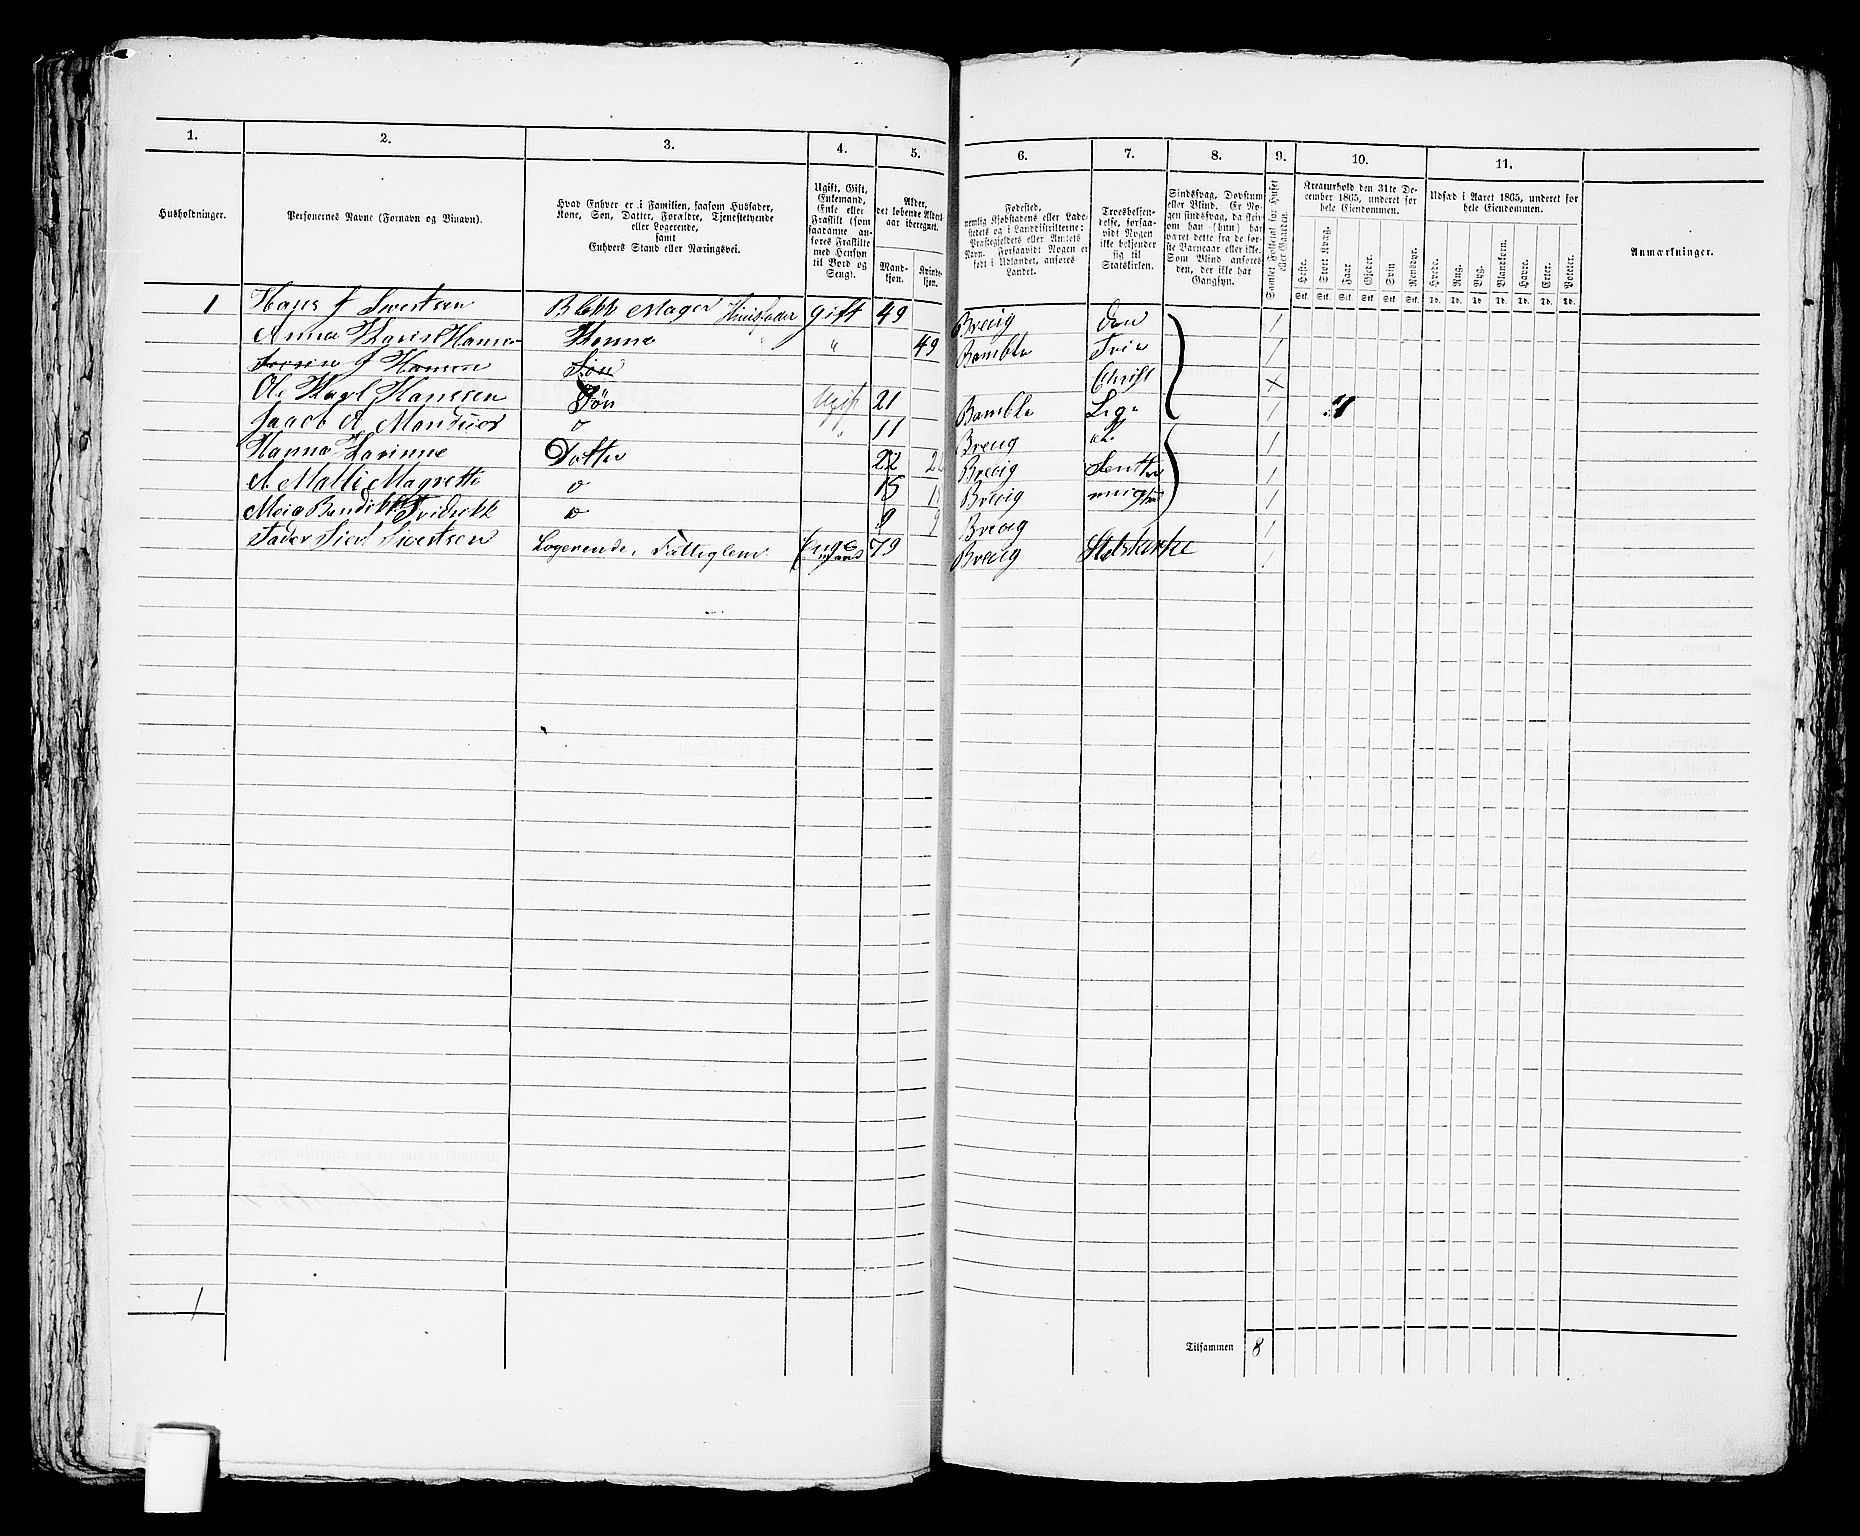 1. 2. 3. 4. 5. 6. 7. 8. 9. 10. 11.
Husholdninger.
Personernes Navne (Fornavn og Binavn).
Hvad Enhver er i Familien, saasom Husfader,
Kone, Søn, Datter, Forældre, Tjenestetyende
eller Logerende,
samt
Enhvers Stand eller Næringsvei.
Ugift, Gift,
Enkemand,
Enke eller
Fraskilt (som
saadanne an-
føres Fraskilte
med Hensyn
til Bord og
Seng).
Alder,
det løbende Alders-
aar iberegnet.
Mand-
kjøn.
Kvinde-
kjøn.
Fødested,
nemlig Kjøbstadens eller Lade-
stedets og i Landdistrikterne:
Præstegjeldets eller Amtets
Navn. Forsaavidt Nogen er
født i Udlandet, anføres
Landet.
Troesbekjen-
delse, forsaa-
vidt Nogen
ikke bekjender
sig til
Statskirken.
Sindssvag, Døvstum
eller Blind. Er No-
gen sindssvag, da skri-
ves om han (hun) har
været dette fra de før-
ste Barneaar eller ikke.
Som Blind anføres
den, der ikke har
Gangsyn.
Samlet Folketal for Huset
eller Gaarden.
Kreaturhold den 31te De-
cember 1865, underet for
hele Eiendommen.
Heste. Stort Kvæg. Faar. Gjeder. Svin Rensdyr.
Stk. Stk. Stk. Stk. Stk. Stk.
Udsæd i Aaret 1865, underet for
hele Eiendommen.
Hvede. Rug. Byg. Blandkorn. Havre. Erter. Poteter.
Td. Td. Td. Td. Td. Td. Td.
Anmærkninger.
1 Hans J Sivertsen Blokk Mager Huusfader gift 49 Brevig den 1
Anna Karie Hansen Konne " 49 Bamble Frie 1
J Hansen Søn Christ x
Ole Karl Hanssen Søn Ugift 21 Bamble Lige 1
Jacob A " 11 Brevig 1
Hanna Karinne Datter 22 Brevig 1
A Malli Magrethe 15 Brevig 1
9 Brevig 1
Fader Siert Sivertsen Logerende, 79 Brevig Statskirke 1
1
Tilsammen 8